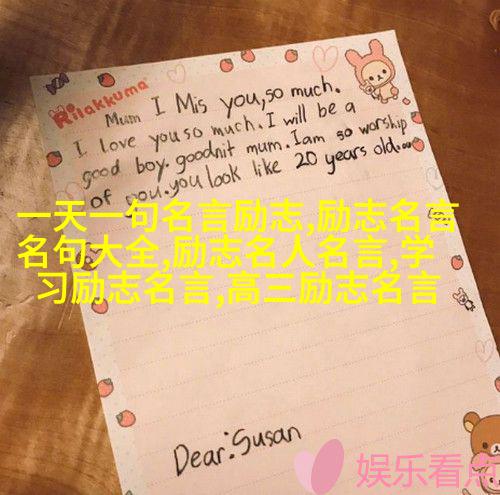 Rilakkuma
Mum I Mis you,so much.
I love you so much. I will be a
good boy. goodnit mum. Iam so worship
of you.you look like 20 years old.
一天一句名言励志,励志名言
名句大全,励志名人名言,学
习励志名言,高三励志名言
Dear:Susan
娱乐看点